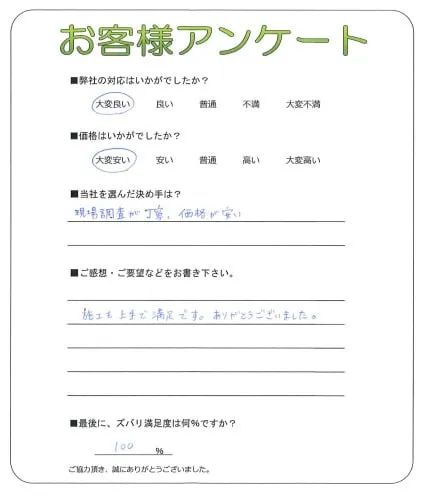 お客様アンケート
■弊社の対応はいかがでしたか？
大変良い 良い 普通 不満 大変不満
■価格はいかがでしたか？
大変安い 安い 普通 高い 大変高い
■当社を選んだ決め手は？
現場調査が丁寧、価格が安い
■ご感想・ご要望などをお書き下さい。
施工も上手で満足です。ありがとうございました。
■最後に、ズバリ満足度は何％ですか？
100 ％
ご協力頂き、誠にありがとうございました。